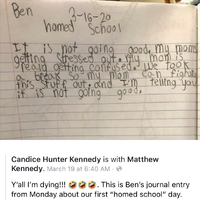 Ben 3-16-20
homed School
It is not going good. My mom's
getting stressed out. My mom is
really getting confused. We took
a break so my mom can figure
this stuff out. and I'm telling you
it is not going good.
Candice Hunter Kennedy is with Matthew
Kennedy. March 19 at 6:40 AM ·
Y'all I'm dying!!! 🤣🤣🤣. This is Ben's journal entry
from Monday about our first "homed school" day.